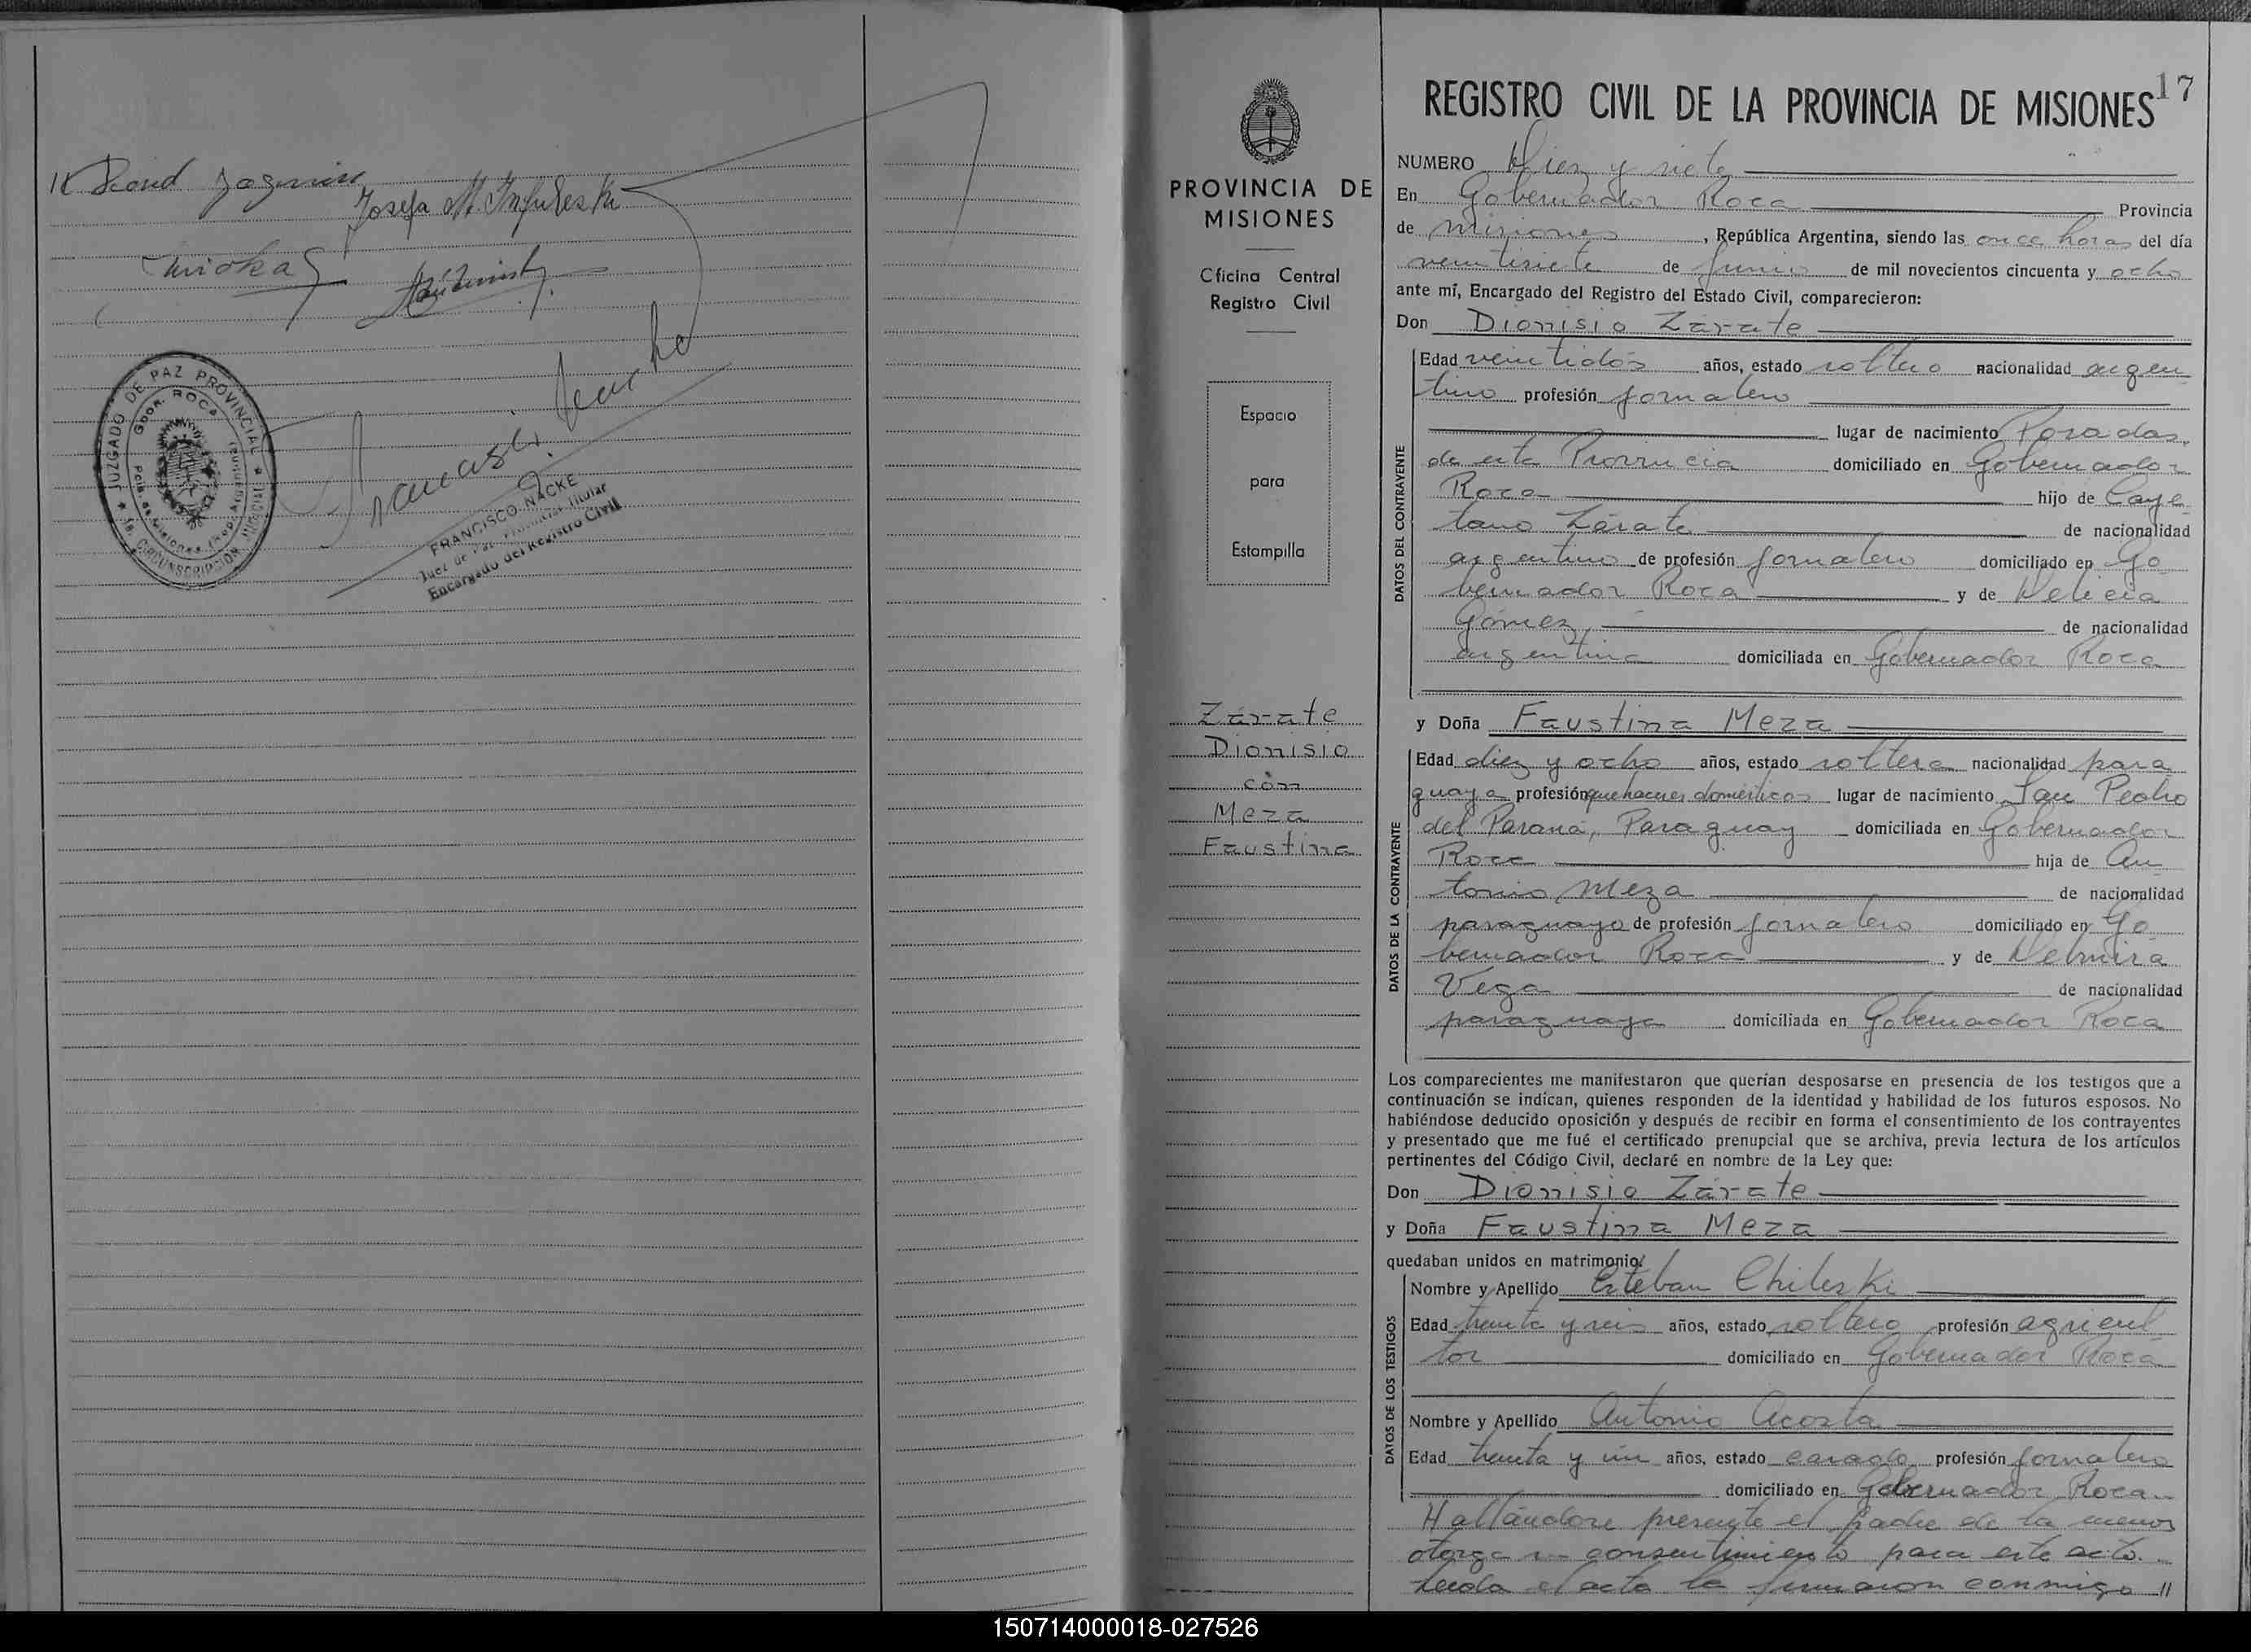 Josefa M.
JUZGADO DE PAZ PROVINCIAL
GDOR. ROCA
FRANCISCO NACKE
Juez de Paz Provincial Titular
Encargado del Registro Civil
PROVINCIA DE
MISIONES
Oficina Central
Registro Civil
Espacio
para
Estampilla
Zárate
Dionisio
con
Meza
Faustina
REGISTRO CIVIL DE LA PROVINCIA DE MISIONES 17
NUMERO Diez y siete
En Gobernador Roca Provincia
de Misiones, República Argentina, siendo las once horas del día
veintisiete de Junio de mil novecientos cincuenta y ocho
ante mí, Encargado del Registro del Estado Civil, comparecieron:
Don Dionisio Zárate
Edad veintidós años, estado soltero nacionalidad argen
tino profesión jornalero
lugar de nacimiento Posadas,
de esta Provincia domiciliado en Gobernador
Roca hijo de Caye
tano Zárate de nacionalidad
argentino de profesión jornalero domiciliado en Go
bernador Roca y de Delicia
Gómez de nacionalidad
argentina domiciliada en Gobernador Roca
y Doña Faustina Meza
Edad diez y ocho años, estado soltera nacionalidad para
guaya profesión quehaceres domésticos lugar de nacimiento San Pedro
del Paraná, Paraguay domiciliada en Gobernador
Roca hija de An
tonio Meza de nacionalidad
paraguayo de profesión jornalero domiciliado en Go
bernador Roca y de Delmira
Vega de nacionalidad
paraguaya domiciliada en Gobernador Roca
DATOS DEL CONTRAYENTE
DATOS DE LA CONTRAYENTE
Los comparecientes me manifestaron que querían desposarse en presencia de los testigos que a
continuación se indican, quienes responden de la identidad y habilidad de los futuros esposos. No
habiéndose deducido oposición y después de recibir en forma el consentimiento de los contrayentes
y presentado que me fué el certificado prenupcial que se archiva, previa lectura de los artículos
pertinentes del Código Civil, declaré en nombre de la Ley que:
Don Dionisio Zárate
y Doña Faustina Meza
quedaban unidos en matrimonio.
Nombre y Apellido Esteban Chileski
Edad treinta y seis años, estado soltero profesión agricul
tor domiciliado en Gobernador Roca
Nombre y Apellido Antonio Acosta
Edad treinta y un años, estado casado profesión jornalero
domiciliado en Gobernador Roca.
DATOS DE LOS TESTIGOS
Hallándose presente el padre de la menor
otorga su consentimiento para este acto.
Leida el acta la firmaron conmigo //
150714000018-027526